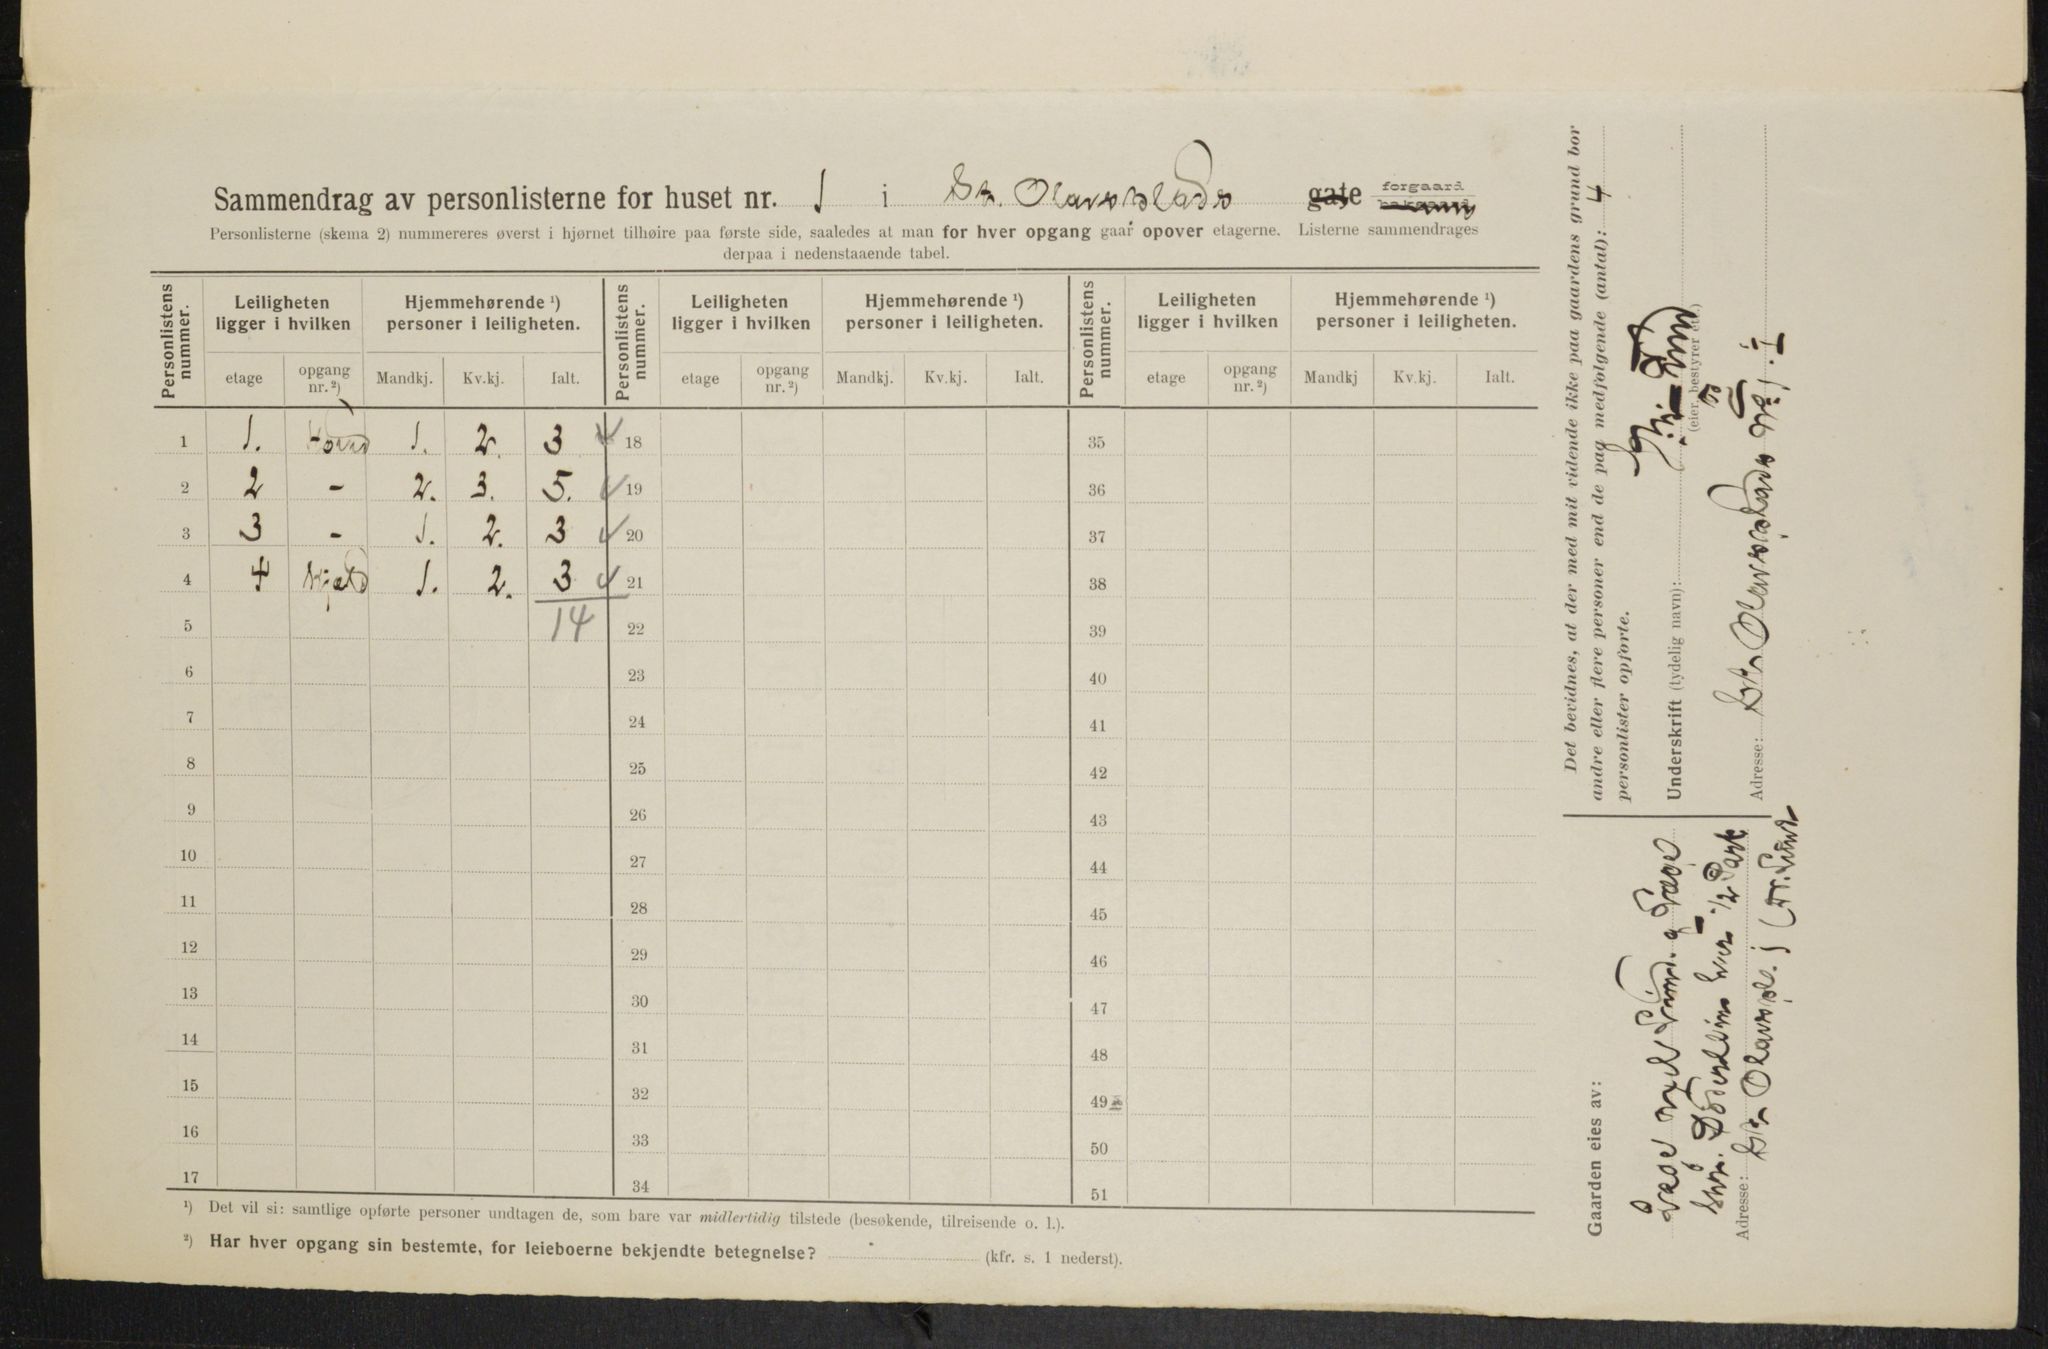 Sammendrag av personlisterne for huset nr. 1 i St. Olavsplads gate forgaard
Personlisterne (skema 2) nummereres øverst i hjørnet tilhøire paa første side, saaledes at man for hver opgang gaar opover etagerne. Listerne sammendrages
derpaa i nedenstaaende tabel.
Personlistens nummer. Leiligheten ligger i hvilken Hjemmehørende ¹) personer i leiligheten. Personlistens nummer. Leiligheten ligger i hvilken Hjemmehørende ¹) personer i leiligheten. Personlistens nummer. Leiligheten ligger i hvilken Hjemmehørende ¹) personer i leiligheten.
etage opgang nr. ²) Mandkj. Kv.kj. Ialt. etage opgang nr. ²) Mandkj. Kv.kj. Ialt. etage opgang nr. ²) Mandkj Kv.kj. Ialt.
1 1. Hoved 1. 2. 3 18 35
2 2 - 2. 3. 5. 19 36
3 3 - 1. 2. 3 20 37
4 4 1. 2. 3 21 38
5 14 22 39
6 23 40
7 24 41
8 25 42
9 26 43
10 27 44
11 28 45
12 29 46
13 30 47
14 31 48
15 32 49
16 33 50
17 34 51
¹) Det vil si: samtlige opførte personer undtagen de, som bare var midlertidig tilstede (besøkende, tilreisende o. l.).
²) Har hver opgang sin bestemte, for leieboerne bekjendte betegnelse? (kfr. s. 1 nederst).
Det bevidnes, at der med mit vidende ikke paa gaardens grund bor
andre eller flere personer end de paa medfølgende (antal): 4
personlister opførte.
Underskrift (tydelig navn):
(eier, bestyrer etc.)
Adresse: St. Olavsplads No 1. I
Gaarden eies av:
Læge Lund. og Læge
Döderlein hver 1/2 Part
Adresse: St. Olavspl. 1 (Dr. Lund